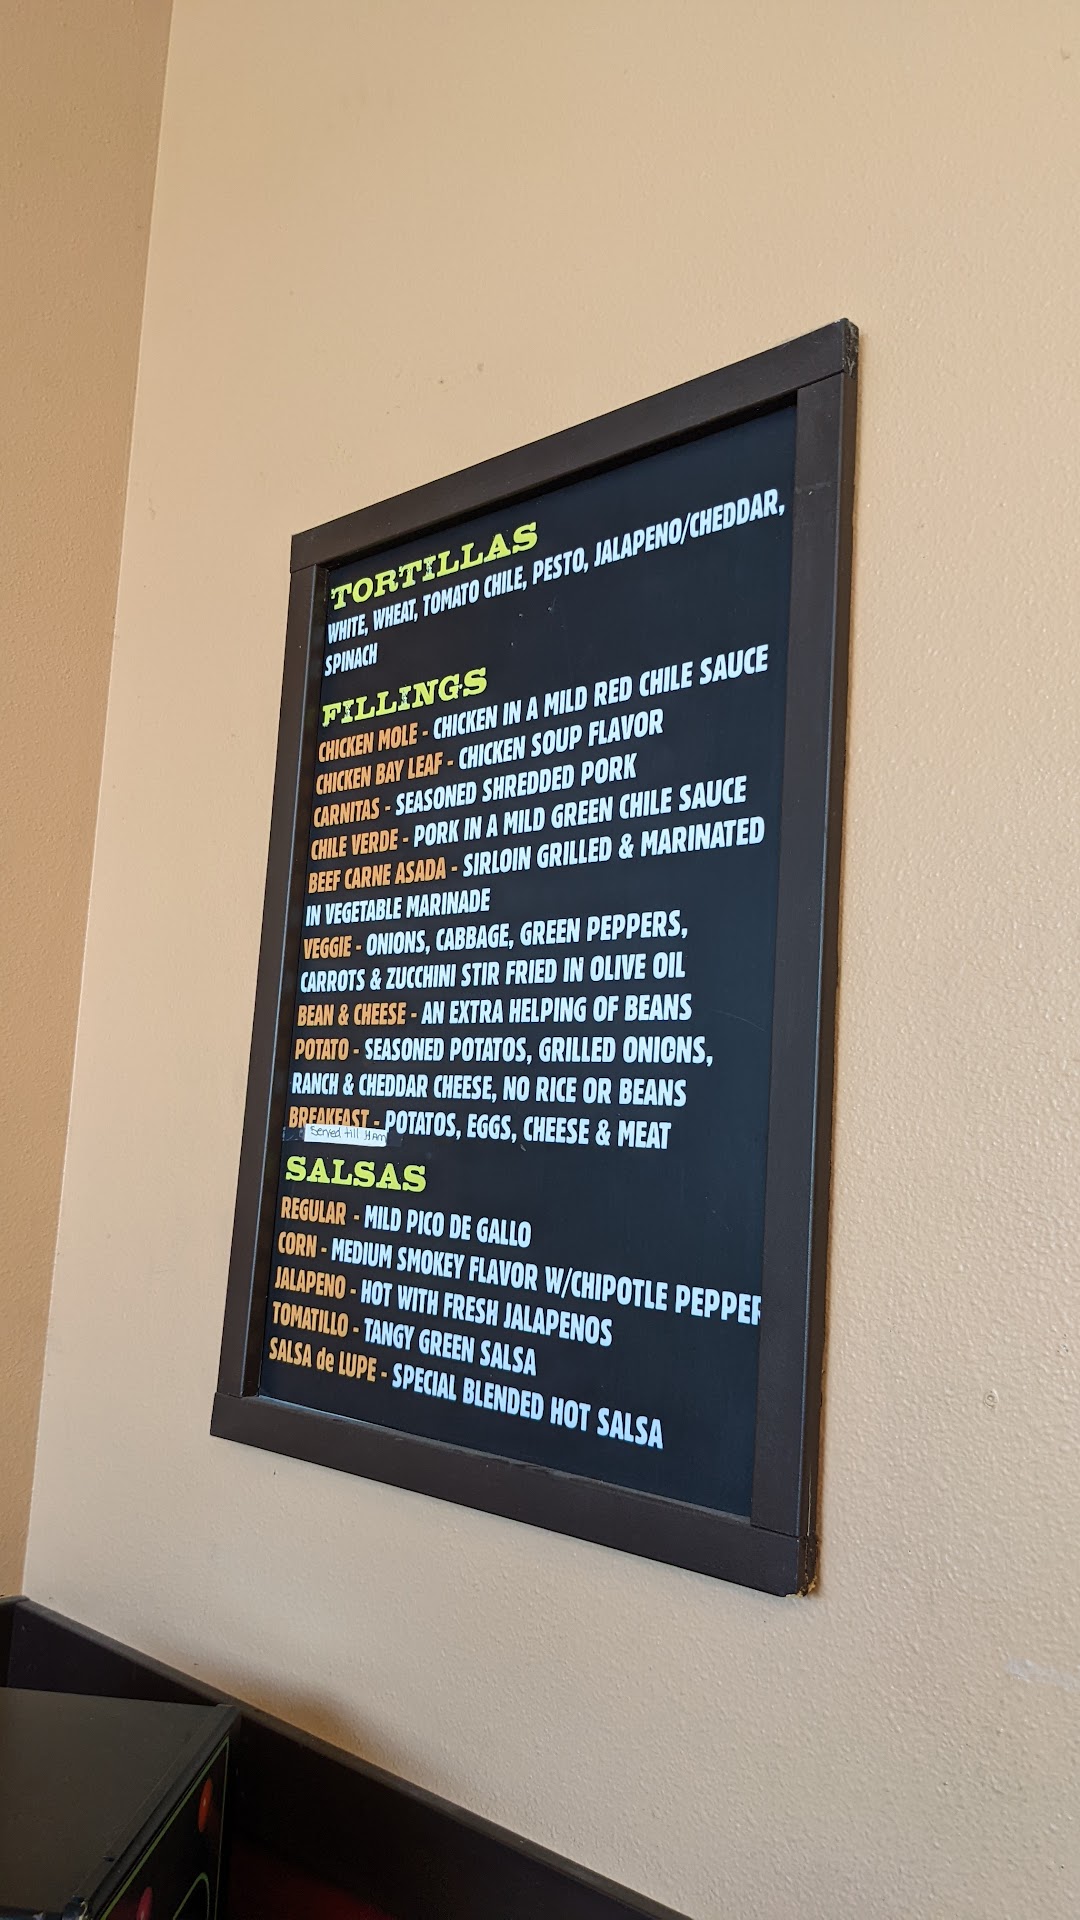 TORTILLAS
WHITE, WHEAT, TOMATO CHILE, PESTO, JALAPENO/CHEDDAR,
SPINACH
FILLINGS
CHICKEN MOLE - CHICKEN IN A MILD RED CHILE SAUCE
CHICKEN BAY LEAF - CHICKEN SOUP FLAVOR
CARNITAS - SEASONED SHREDDED PORK
CHILE VERDE - PORK IN A MILD GREEN CHILE SAUCE
BEEF CARNE ASADA - SIRLOIN GRILLED & MARINATED
IN VEGETABLE MARINADE
VEGGIE - ONIONS, CABBAGE, GREEN PEPPERS,
CARROTS & ZUCCHINI STIR FRIED IN OLIVE OIL
BEAN & CHEESE - AN EXTRA HELPING OF BEANS
POTATO - SEASONED POTATOS, GRILLED ONIONS,
RANCH & CHEDDAR CHEESE, NO RICE OR BEANS
BREAKFAST - POTATOS, EGGS, CHEESE & MEAT
Served till 11 Am
SALSAS
REGULAR - MILD PICO DE GALLO
CORN - MEDIUM SMOKEY FLAVOR W/CHIPOTLE PEPPER
JALAPENO - HOT WITH FRESH JALAPENOS
TOMATILLO - TANGY GREEN SALSA
SALSA de LUPE - SPECIAL BLENDED HOT SALSA